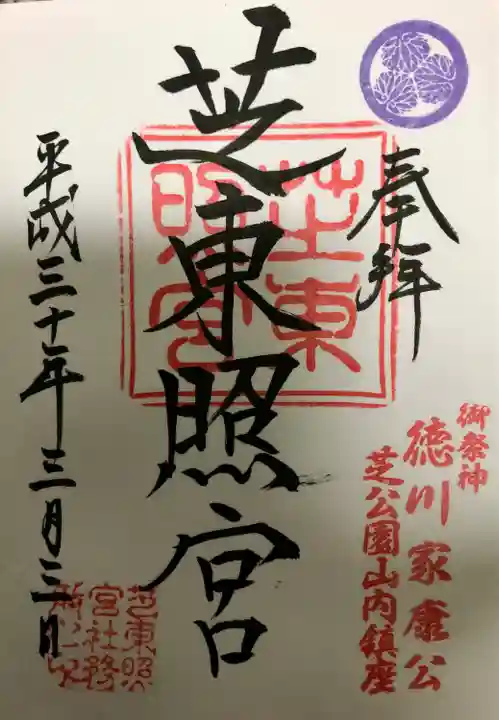 奉拝
御祭神
徳川家康公
芝公園山内鎮座
芝東照宮
芝東
照宮
平成三十年三月三日
芝東照
宮社務
所之印